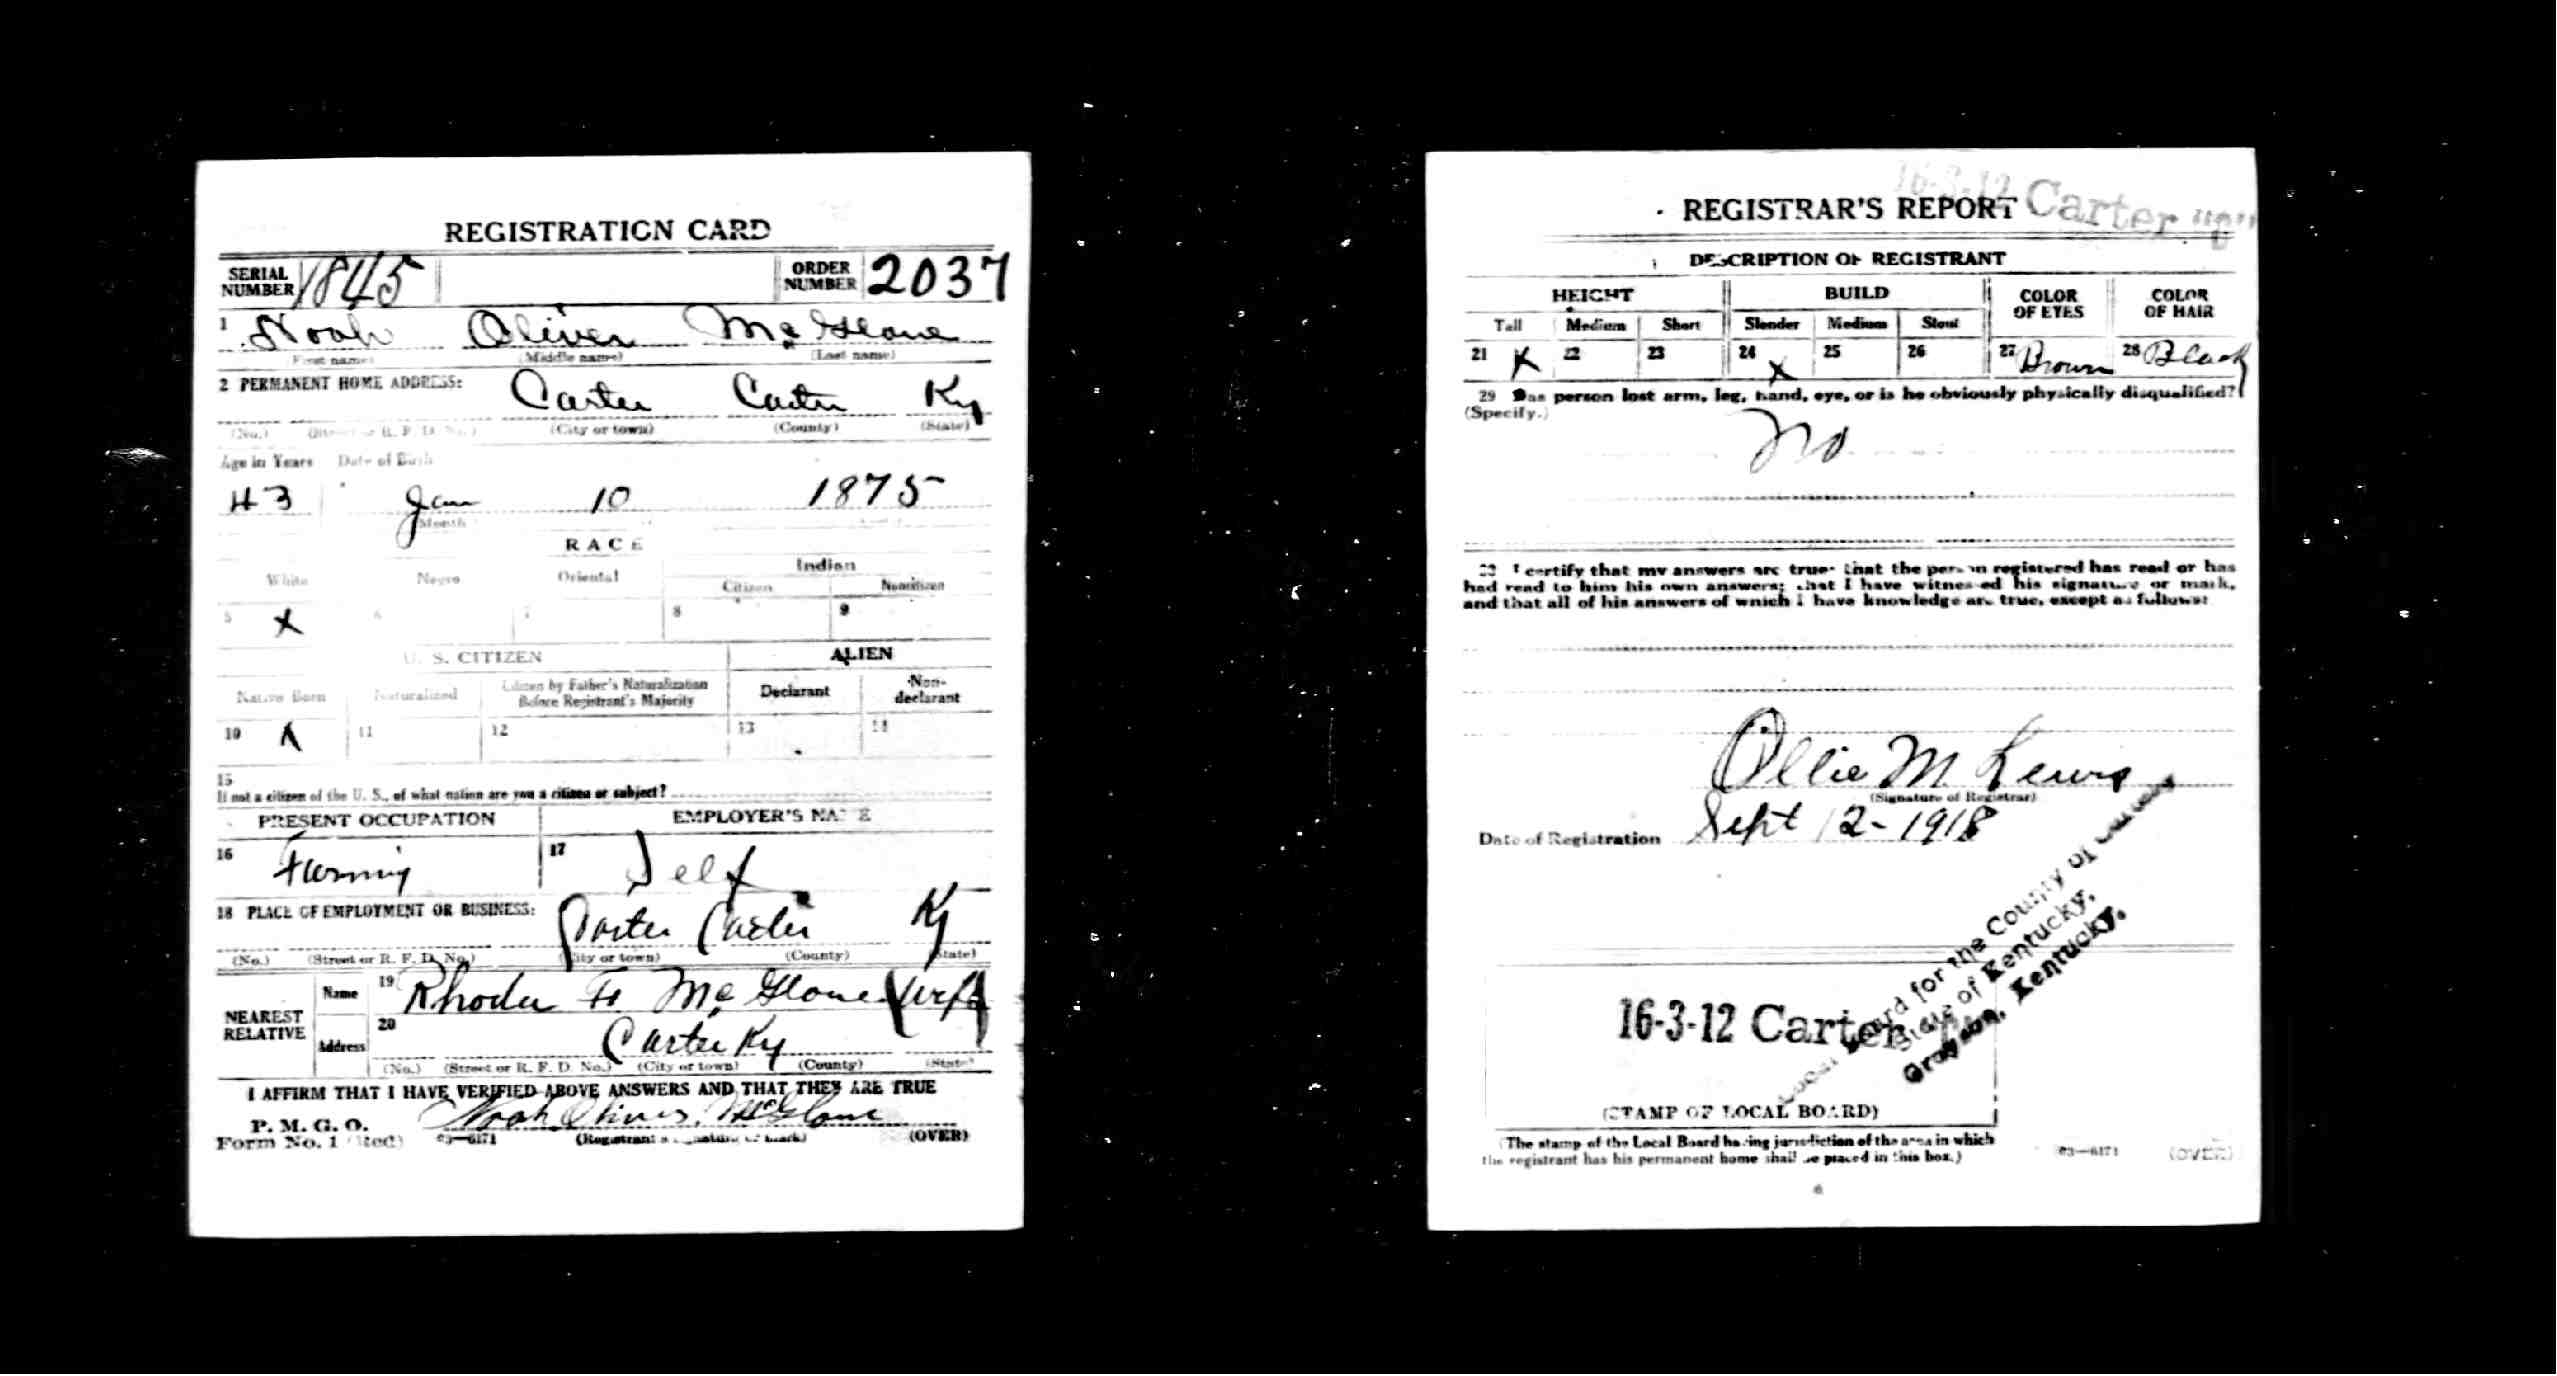 REGISTRATION CARD
SERIAL NUMBER 1845 ORDER NUMBER 2037
1 Noah Oliver McGlone
(First name) (Middle name) (Last name)
2 PERMANENT HOME ADDRESS: Carter Carter Ky
(No.) (Street or R. F. D. No.) (City or town) (County) (State)
Age in Years Date of Birth
43 Jan 10 1875
Month
RACE
White Negro Oriental Indian
Citizen Noncitizen
5 X 6 7 8 9
U. S. CITIZEN ALIEN
Native Born Naturalized Citizen by Father's Naturalization Before Registrant's Majority Declarant Non-declarant
10 X 11 12 13 14
15
If not a citizen of the U. S., of what nation are you a citizen or subject?
PRESENT OCCUPATION EMPLOYER'S NAME
16 Farming 17 Self
18 PLACE OF EMPLOYMENT OR BUSINESS: Carter Carter Ky
(No.) (Street or R. F. D. No.) (City or town) (County) (State)
NEAREST RELATIVE Name 19 Rhoda F. McGlone (Wife)
Address 20 Carter Ky
(No.) (Street or R. F. D. No.) (City or town) (County) (State)
I AFFIRM THAT I HAVE VERIFIED ABOVE ANSWERS AND THAT THEY ARE TRUE
P. M. G. O.
Form No. 1 (Red) 03—6171 Noah Oliver McGlone
(Registrant's signature or mark) (OVER)
16-3-12 Carter
REGISTRAR'S REPORT
DESCRIPTION OF REGISTRANT
HEIGHT BUILD COLOR OF EYES COLOR OF HAIR
Tall Medium Short Slender Medium Stout
21 X 22 23 24 X 25 26 27 Brown 28 Black
29 Has person lost arm, leg, hand, eye, or is he obviously physically disqualified?
(Specify.) No
30 I certify that my answers are true; that the person registered has read or has
had read to him his own answers; that I have witnessed his signature or mark,
and that all of his answers of which I have knowledge are true, except as follows:
Ollie M Lewis
(Signature of Registrar)
Date of Registration Sept 12-1918
Local Board for the County of
State of Kentucky,
Grayson, Kentucky.
16-3-12 Carter
(STAMP OF LOCAL BOARD)
(The stamp of the Local Board having jurisdiction of the area in which
the registrant has his permanent home shall be placed in this box.)
03—6171 (OVER)